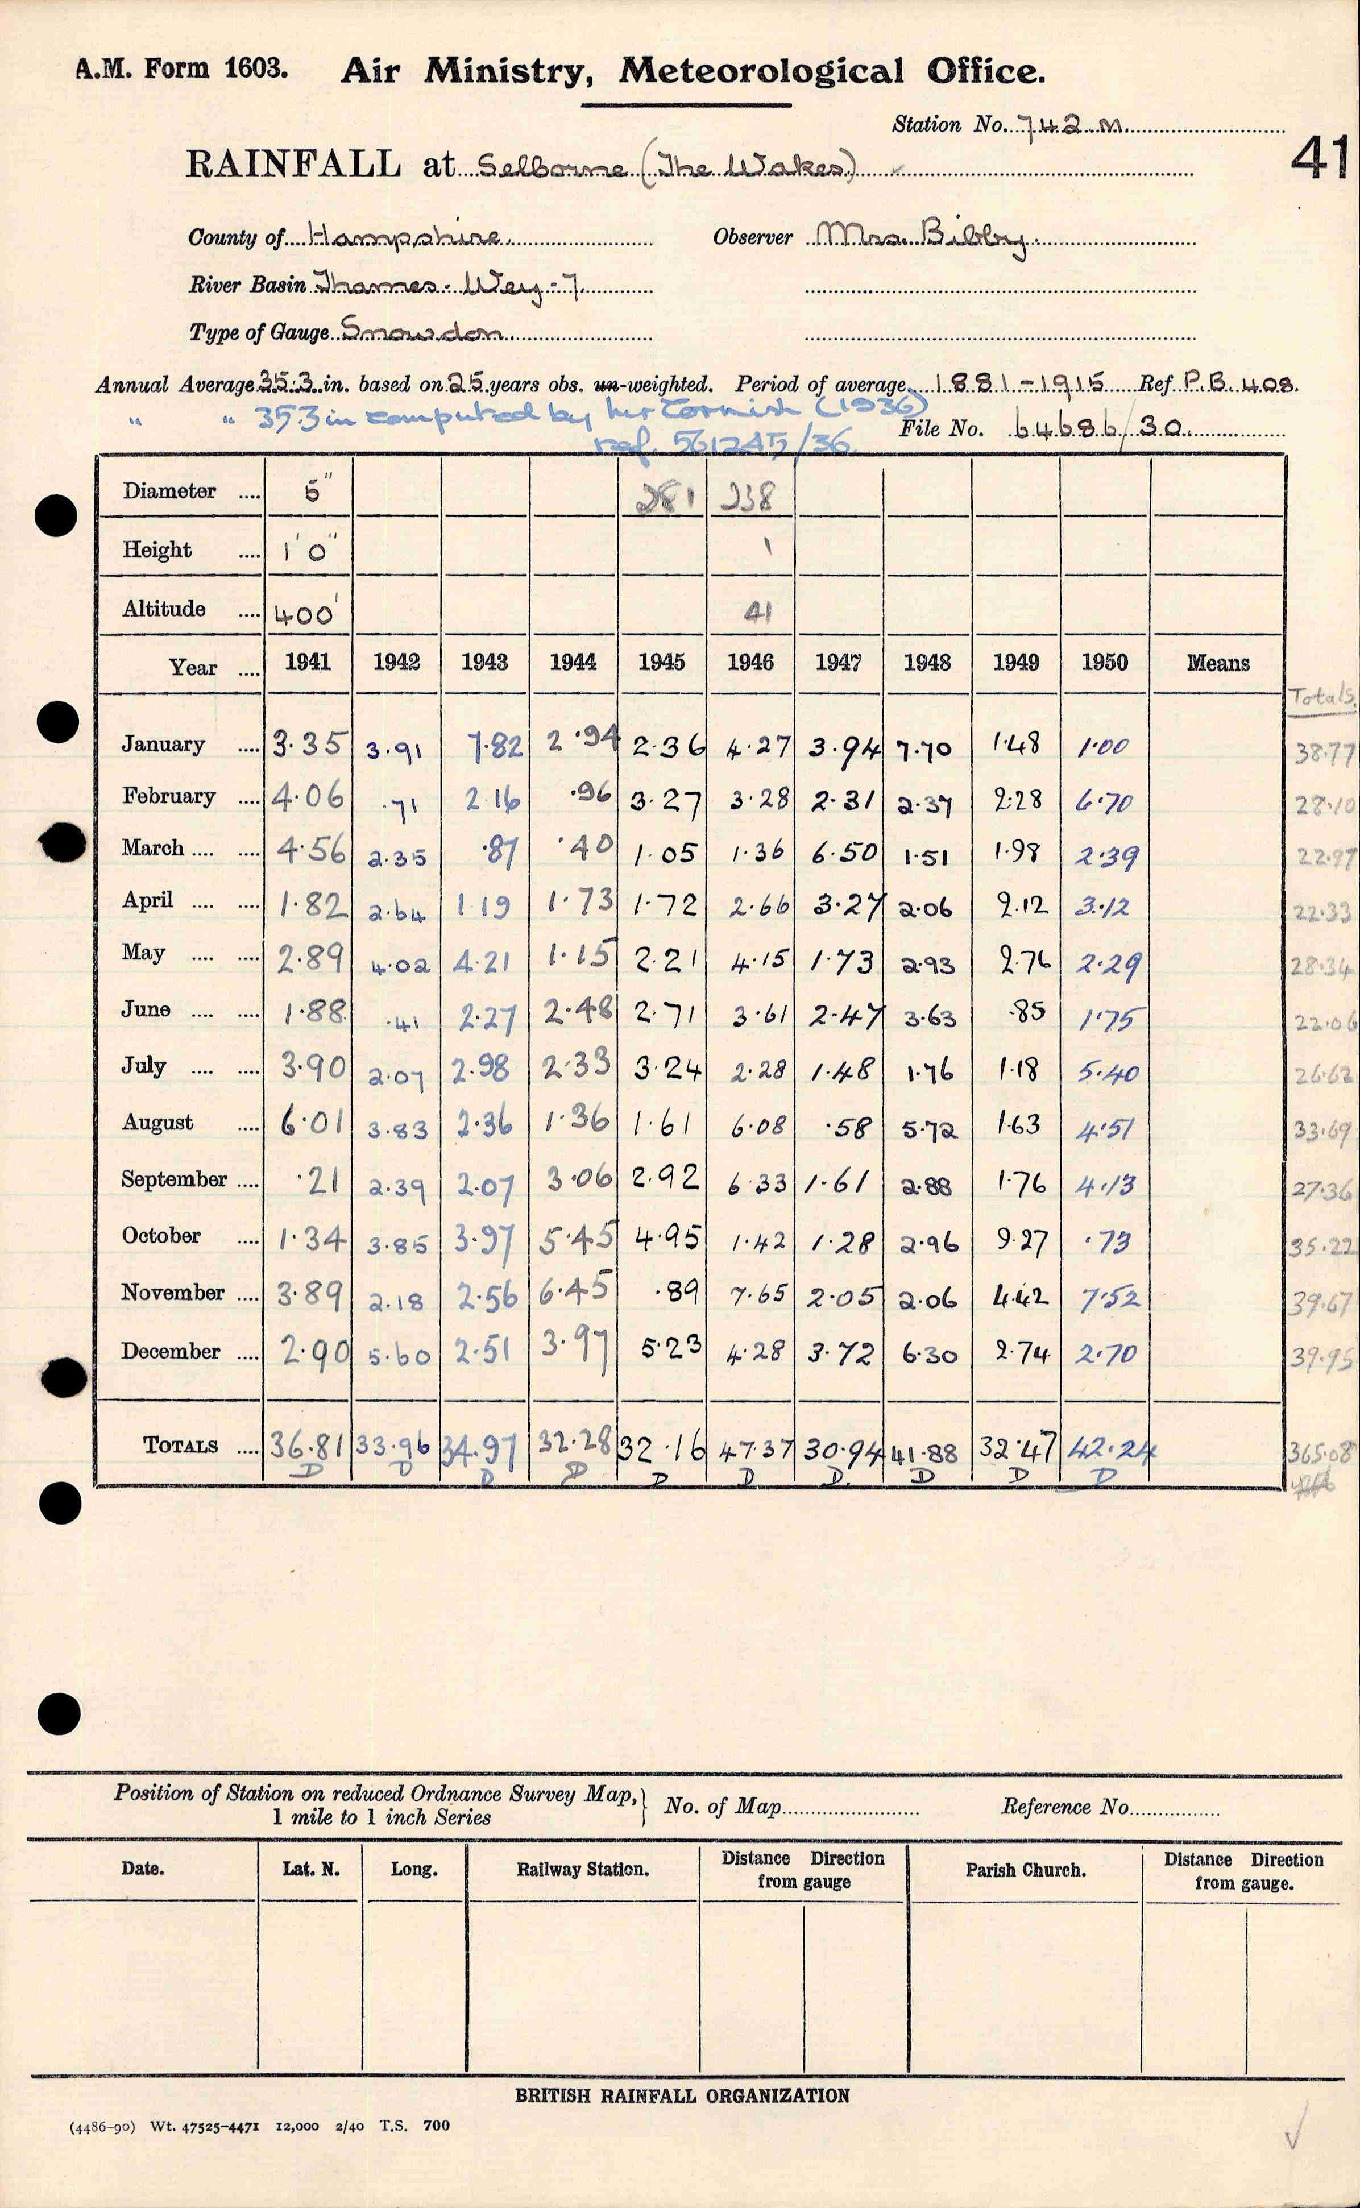 A.M. Form 1603. Air Ministry, Meteorological Office.
Station No. 742 M
41
RAINFALL at Selborne (The Wakes)
County of Hampshire Observer Mrs. Bibby
River Basin Thames. Wey - 7
Type of Gauge Snowdon
Annual Average 35.3 in. based on 25 years obs. un-weighted. Period of average 1881-1915 Ref P.B. 408.
" " 35.3 in computed by Cornish (1936)
ref. 561245/36
File No. 64686/30
Diameter .... 5" 281 238
Height .... 1' 0" 1
Altitude .... 400' 41
Year .... 1941 1942 1943 1944 1945 1946 1947 1948 1949 1950 Means
Totals
January .... 3.35 3.91 7.82 2.94 2.36 4.27 3.94 7.70 1.48 1.00 38.77
February .... 4.06 .71 2.16 .96 3.27 3.28 2.31 2.37 2.28 6.70 28.10
March .... .... 4.56 2.35 .87 .40 1.05 1.36 6.50 1.51 1.98 2.39 22.97
April .... .... 1.82 2.64 1.19 1.73 1.72 2.66 3.27 2.06 2.12 3.12 22.33
May .... .... 2.89 4.02 4.21 1.15 2.21 4.15 1.73 2.93 2.76 2.29 28.34
June .... .... 1.88 .41 2.27 2.48 2.71 3.61 2.47 3.63 .85 1.75 22.06
July .... .... 3.90 2.07 2.98 2.33 3.24 2.28 1.48 1.76 1.18 5.40 26.62
August .... 6.01 3.83 2.36 1.36 1.61 6.08 .58 5.72 1.63 4.51 33.69
September .... .21 2.39 2.07 3.06 2.92 6.33 1.61 2.88 1.76 4.13 27.36
October .... 1.34 3.85 3.97 5.45 4.95 1.42 1.28 2.96 9.27 .73 35.22
November .... 3.89 2.18 2.56 6.45 .89 7.65 2.05 2.06 4.42 7.52 39.67
December .... 2.90 5.60 2.51 3.97 5.23 4.28 3.72 6.30 2.74 2.70 39.95
TOTALS .... 36.81 33.96 34.97 32.28 32.16 47.37 30.94 41.88 32.47 42.24 365.08
D D D D D D D. D D D
Position of Station on reduced Ordnance Survey Map,
1 mile to 1 inch Series
No. of Map Reference No.
Date. Lat. N. Long. Railway Station. Distance from gauge Direction Parish Church. Distance Direction from gauge.
BRITISH RAINFALL ORGANIZATION
(4486-90) Wt. 47525-4471 12,000 2/40 T.S. 700